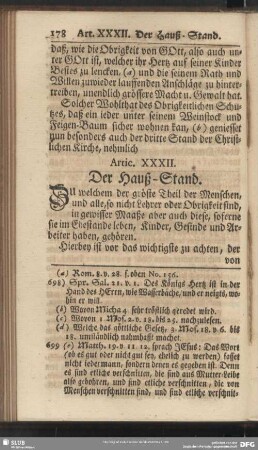 178 Art. XXXII. Der Hauß-Stand.
daß, wie die Obrigkeit von GOtt, also auch un-
ter GOtt ist, welcher ihr Hertz auf seiner Kinder
Bestes zu lencken, (a) und die seinem Rath und
Willen zuwieder lauffenden Anschläge zu hinter-
treiben, unendlich grössere Macht u. Gewalt hat.
Solcher Wohlthat des Obrigkeitlichen Schu-
tzes, daß ein ieder unter seinem Weinstock und
Feigen-Baum sicher wohnen kan, (b) geniesset
nun besonders auch der dritte Stand der Christ-
lichen Kirche, nehmlich
Artic. XXXII.
Der Hauß-Stand.
Zu welchem der gröste Theil der Menschen,
und alle, so nicht Lehrer oder Obrigkeit sind,
in gewisser Maaße aber auch diese, soferne
sie im Ehestande leben, Kinder, Gesinde und Ar-
beiter haben, gehören.
Hierbey ist vor das wichtigste zu achten, der
von
(a) Rom. 8. v. 28. s. oben No. 156.
698) Spr. Sal. 21. v. 1. Des Königs Hertz ist in der
Hand des HErrn, wie Wasserbäche, und er neigts, wo-
hin er will.
(b) Wovon Micha 4. sehr tröstlich geredet wird.
(c) Wovon 1 Mos. 2. v. 18. bis 25. nachzulesen.
(d) Welche das göttliche Gesetz, 3. Mos. 18. v. 6. bis
18. umständlich nahmhaft machet.
699 (e) Matth. 19. v. 11. 12. sprach JEsus: Das Wort
(ob es gut oder nicht gut sey, ehelich zu werden) fasset
nicht iedermann, sondern denen es gegeben ist. Denn
es sind etliche verschnitten, die sind aus Mutter-Leibe
also gebohren, und sind etliche verschnitten, die von
Menschen verschnitten sind, und sind etliche verschnit-
SLUB
DFG